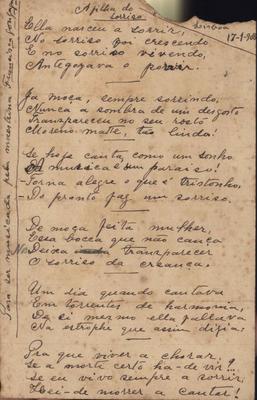 A filha do
sorriso
Lisboa
17-1-906
Ella nasceu a sorrir,
No sorriso foi crescendo
E no sorriso vivendo,
Antegozava o porvir.
Já moça, sempre sorrindo,
Nunca a sombra de um desgosto
Transpareceu no seu rosto
Moreno matte, tão lindo!
Se hoje canta, como um sonho
musica é um paraiso!
Torna alegre o que é tristonho,
De pronto faz um sorriso.
De moça feita mulher,
Essa bocca que não cança
Deixa transparecer
O sorriso da creança.
Um dia quando cantava
Em torrentes de harmonia,
De si mesmo ella fallava
Na estrophe que assim dizia:
Pra que viver a chorar,
Se a morte certo ha-de vir?
Se eu vivo sempre a sorrir,
Hei-de morrer a cantar!
Para ser musicada pela maestrina Francisca Gonzaga